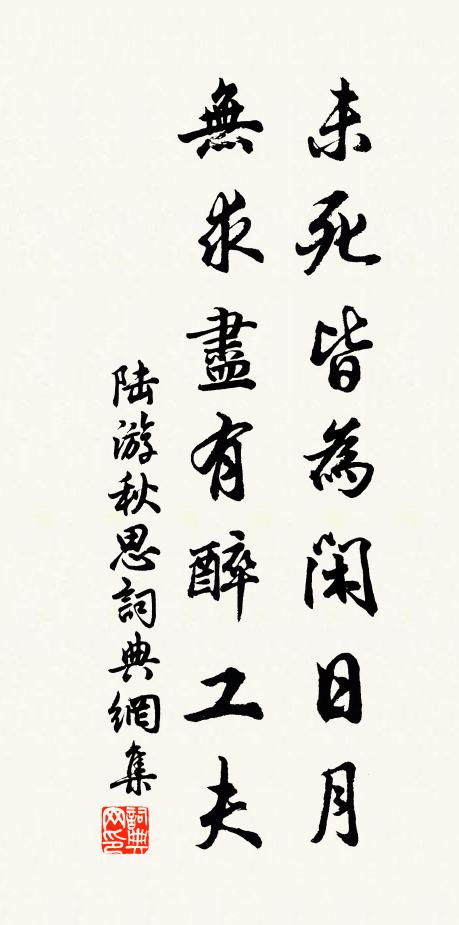 未死皆為閑日月
無求盡有醉工夫
陆游秋思詞典網集
詞典网印